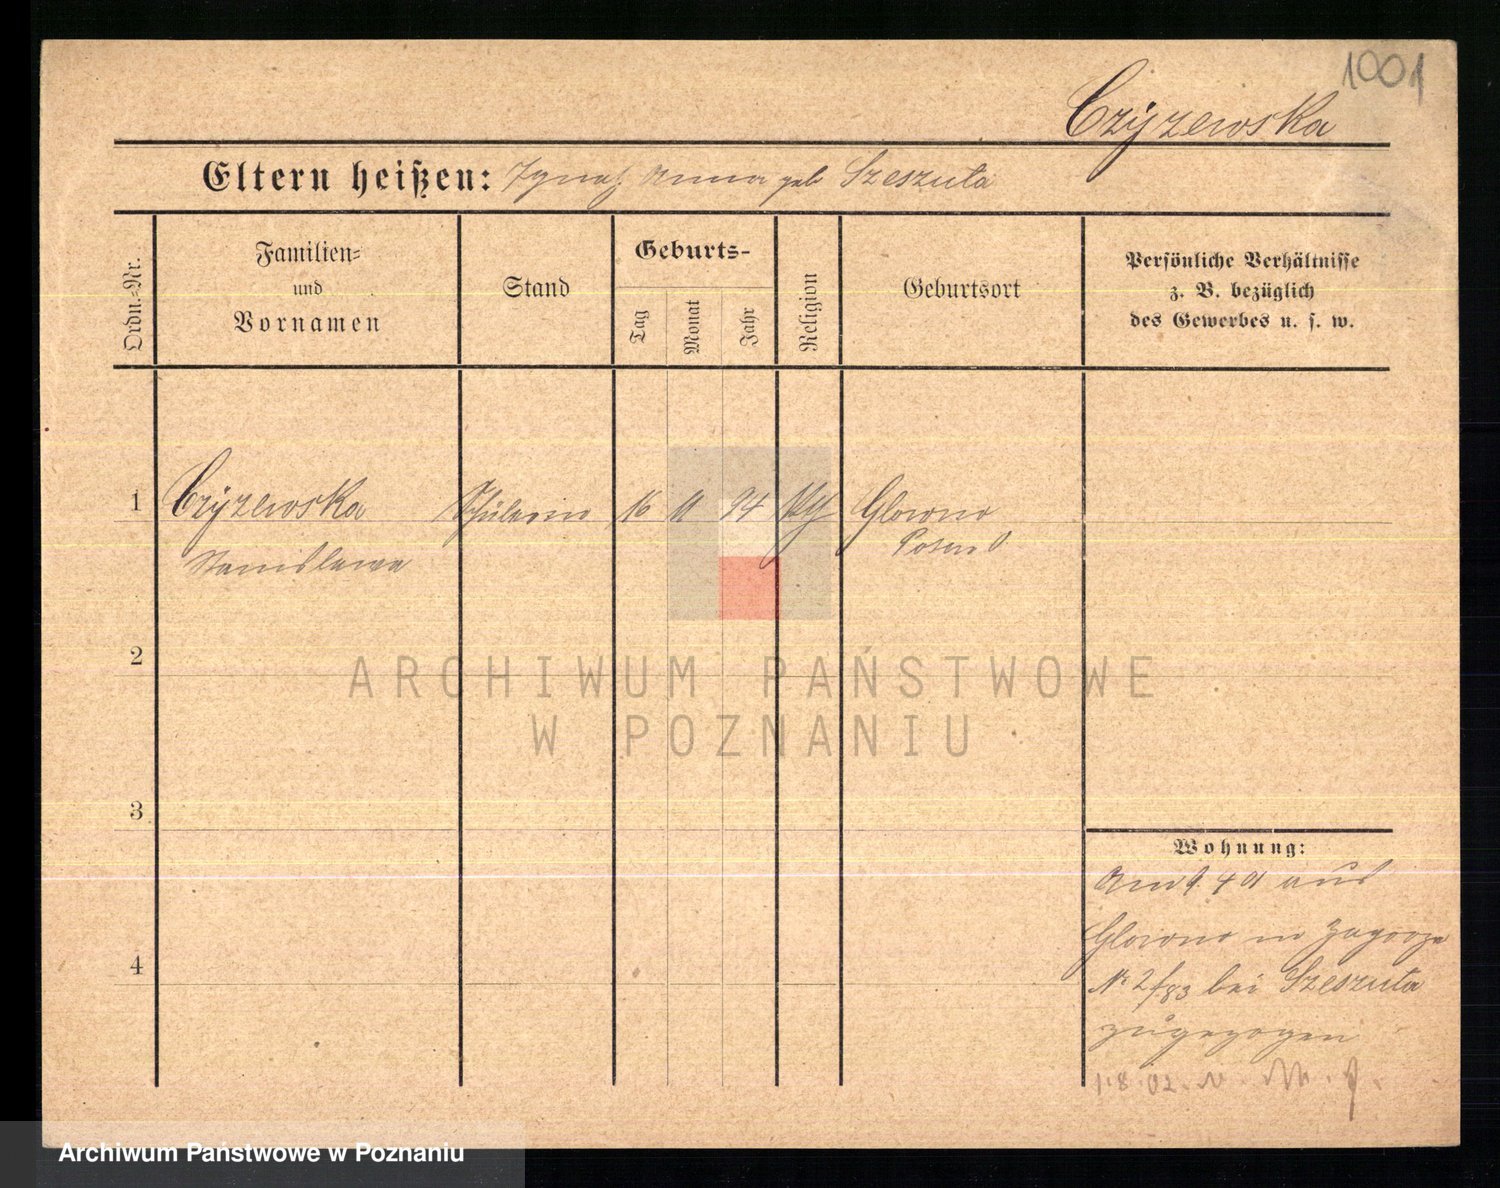 1001
Czÿzewska
Eltern heißen: Ignatz Anna geb Szeszuta
Ordn.-Nr.
Familien-
und
Vornamen
Stand
Geburts-
Tag
Monat
Jahr
Religion
Geburtsort
Persönliche Verhältnisse
z. B. bezüglich
des Gewerbes u. s. w.
1 Czÿzewska Schülerin 16 11 94 Glowno
Stanislawa Posen O
2
ARCHIWUM PAŃSTWOWE
W POZNANIU
3
Wohnung:
Am 1. 4 01 aus
Glowno in Zagorze
No 2/83 bei Szeszuta
zugezogen
1.8.02.
4
Archiwum Państwowe w Poznaniu